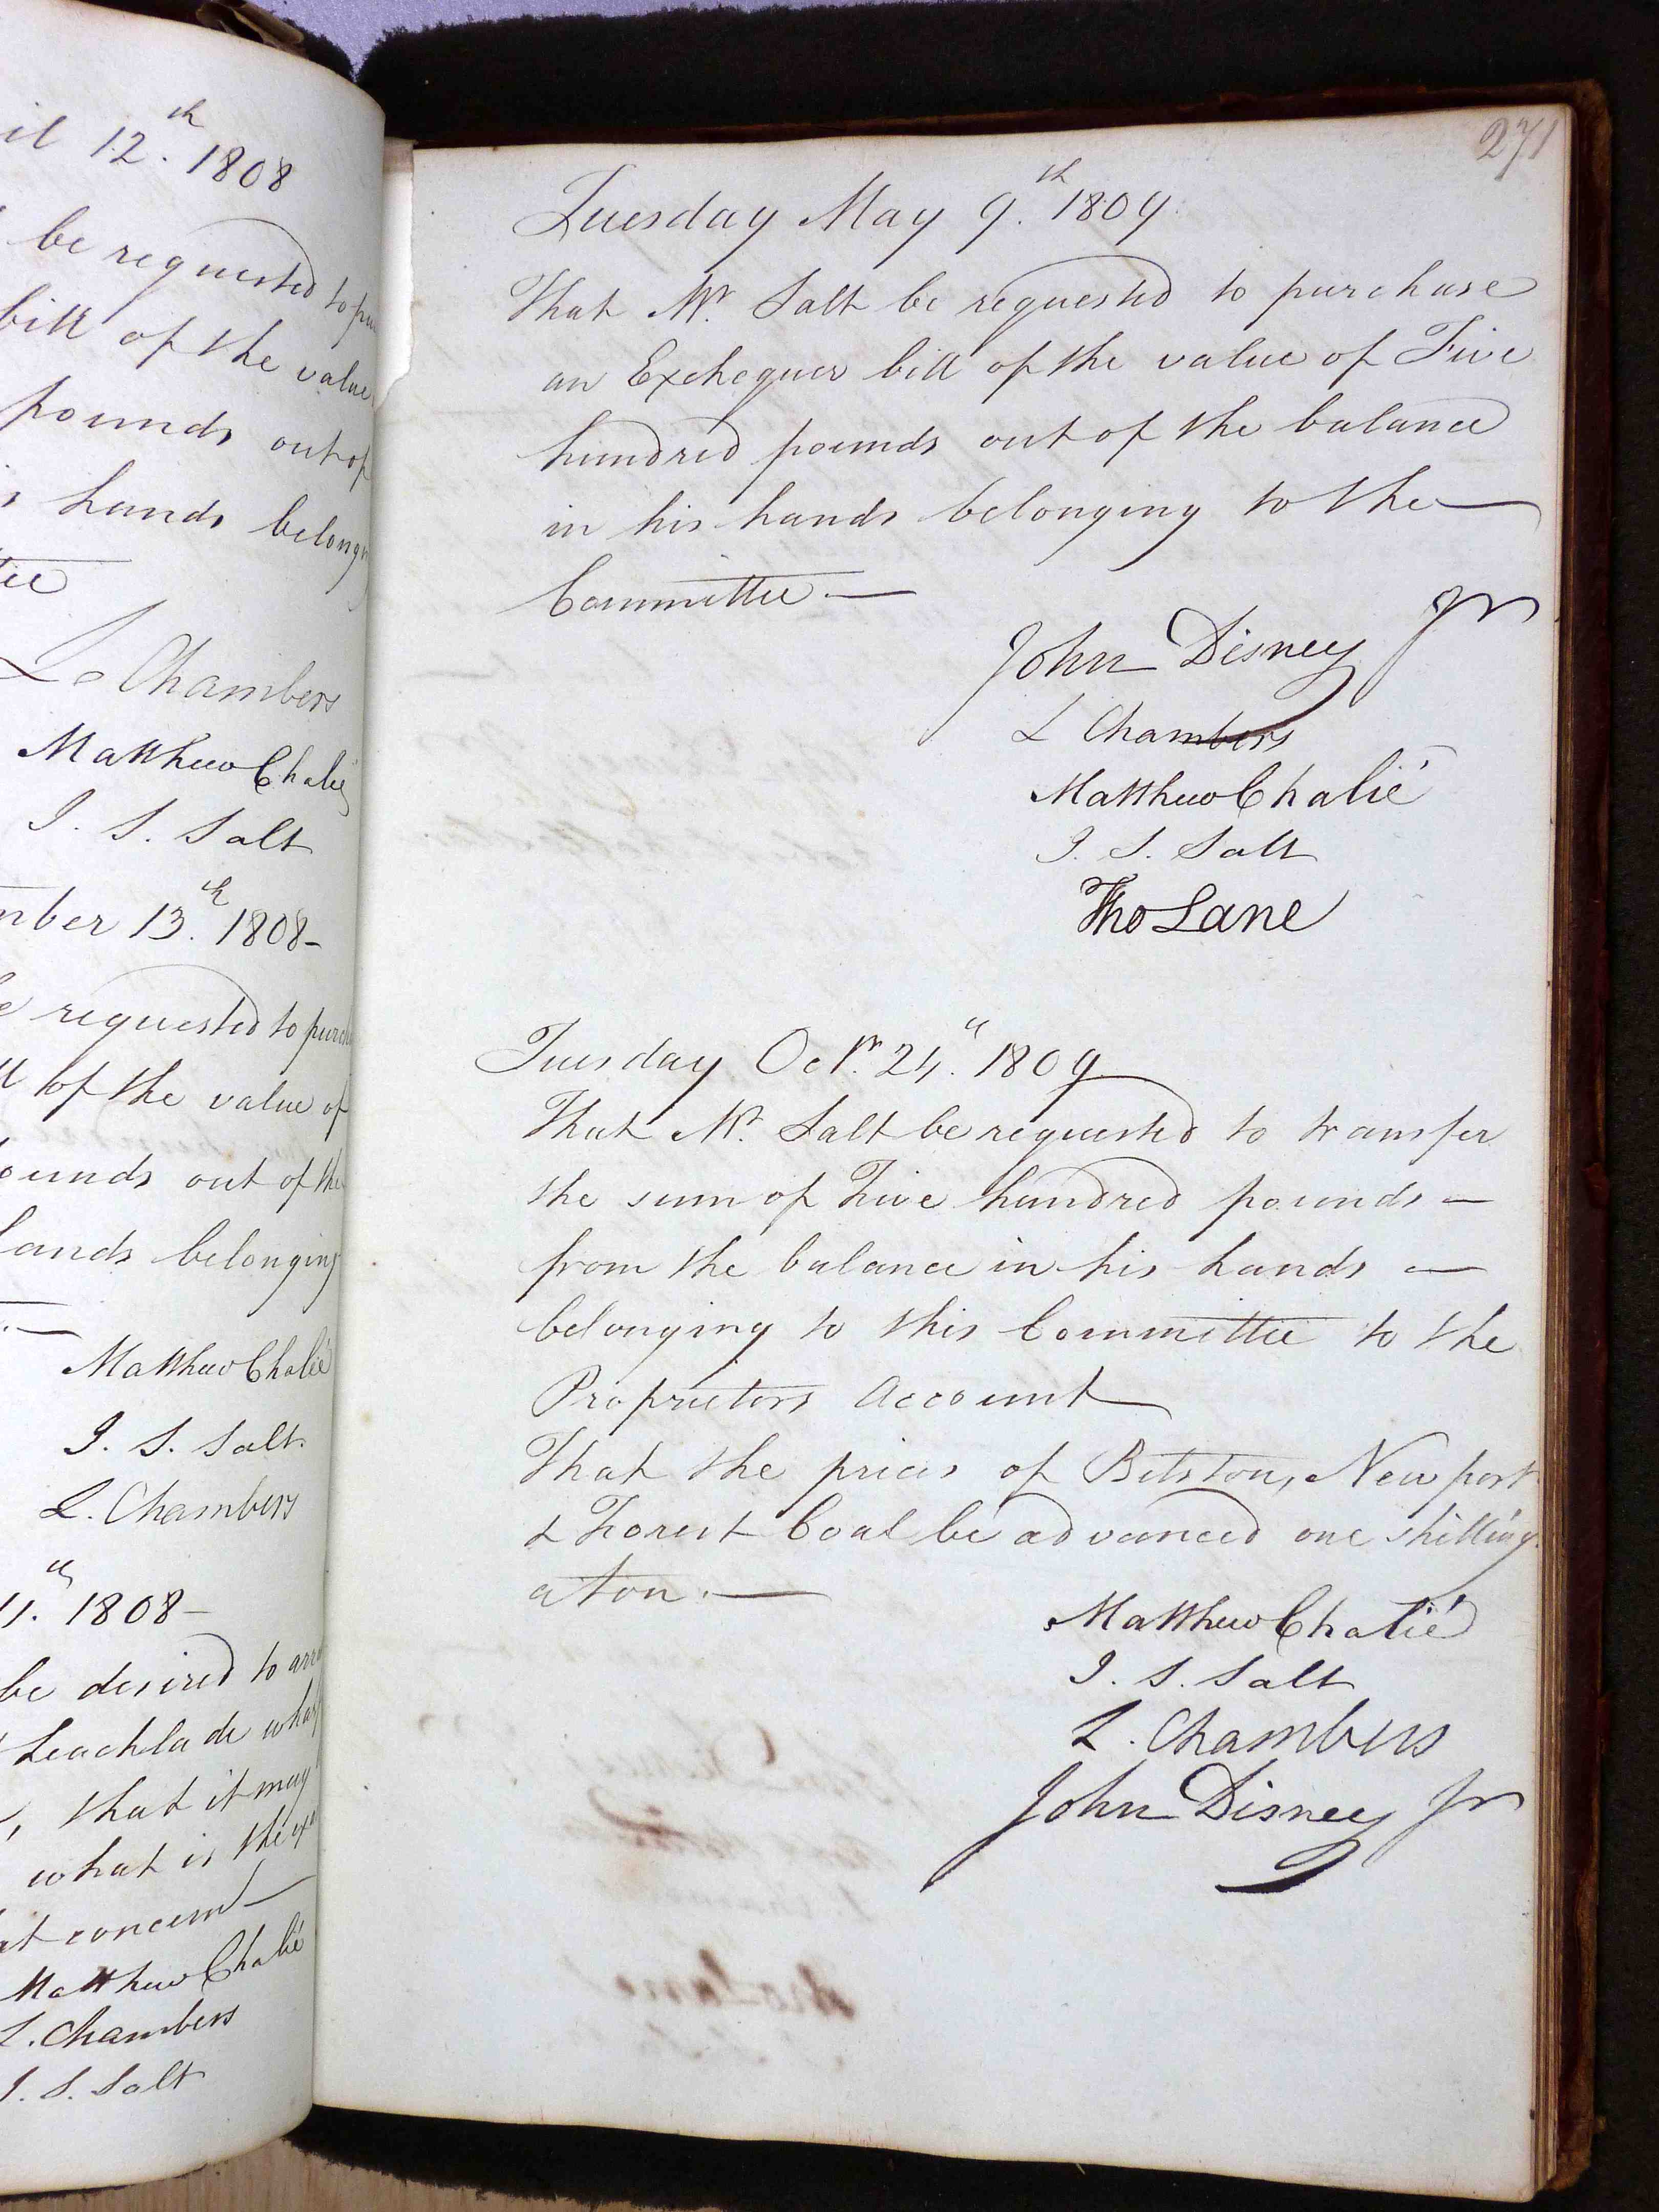 il 12.th 1808
be requested to pu
bill of the value
pounds out of
s hands belong
tee
L Chambers
Matthew Chalié
J. S. Salt
mber 13.th 1808-
e requested to purch
ll of the value of
ounds out of the
hands belonging
Matthew Chalié
J. S. Salt.
L. Chambers
11.th 1808-
be desired to arr
Leachlade wharf
, that it may
what is the ex
at concern
Matthew Chalié
L. Chambers
J. S. Salt
271
Tuesday May 9.th 1809.
That Mr. Salt be requested to purchase
an Exchequer bill of the value of Five
hundred pounds out of the balance
in his hands belonging to the
Committee.—
John Disney Jr
L Chambers
Matthew Chalié
J. S. Salt
Tho Lane
Tuesday Octr. 24.th 1809
That Mr. Salt be requested to transfer
the sum of Five hundred pounds —
from the balance in his hands —
belonging to this Committee to the
Proprietors Account
That the prices of Bilston, Newport
& Forest Coal be advanced one shilling
a ton.—
Matthew Chalié
J. S. Salt
L. Chambers
John Disney Jr